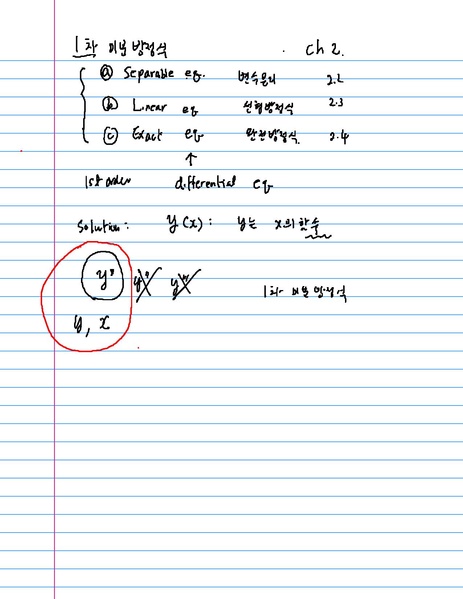 1차 미분방정식 . ch 2.
ⓐ Separable eq. 변수분리 2.2
ⓑ Linear eq 선형방정식 2.3
ⓒ Exact eq 완전방정식. 2.4
↑
1st order differential eq
Solution: y(x): y는 x의 함수
y' y'' y'''
1차 미분방정식
y, x